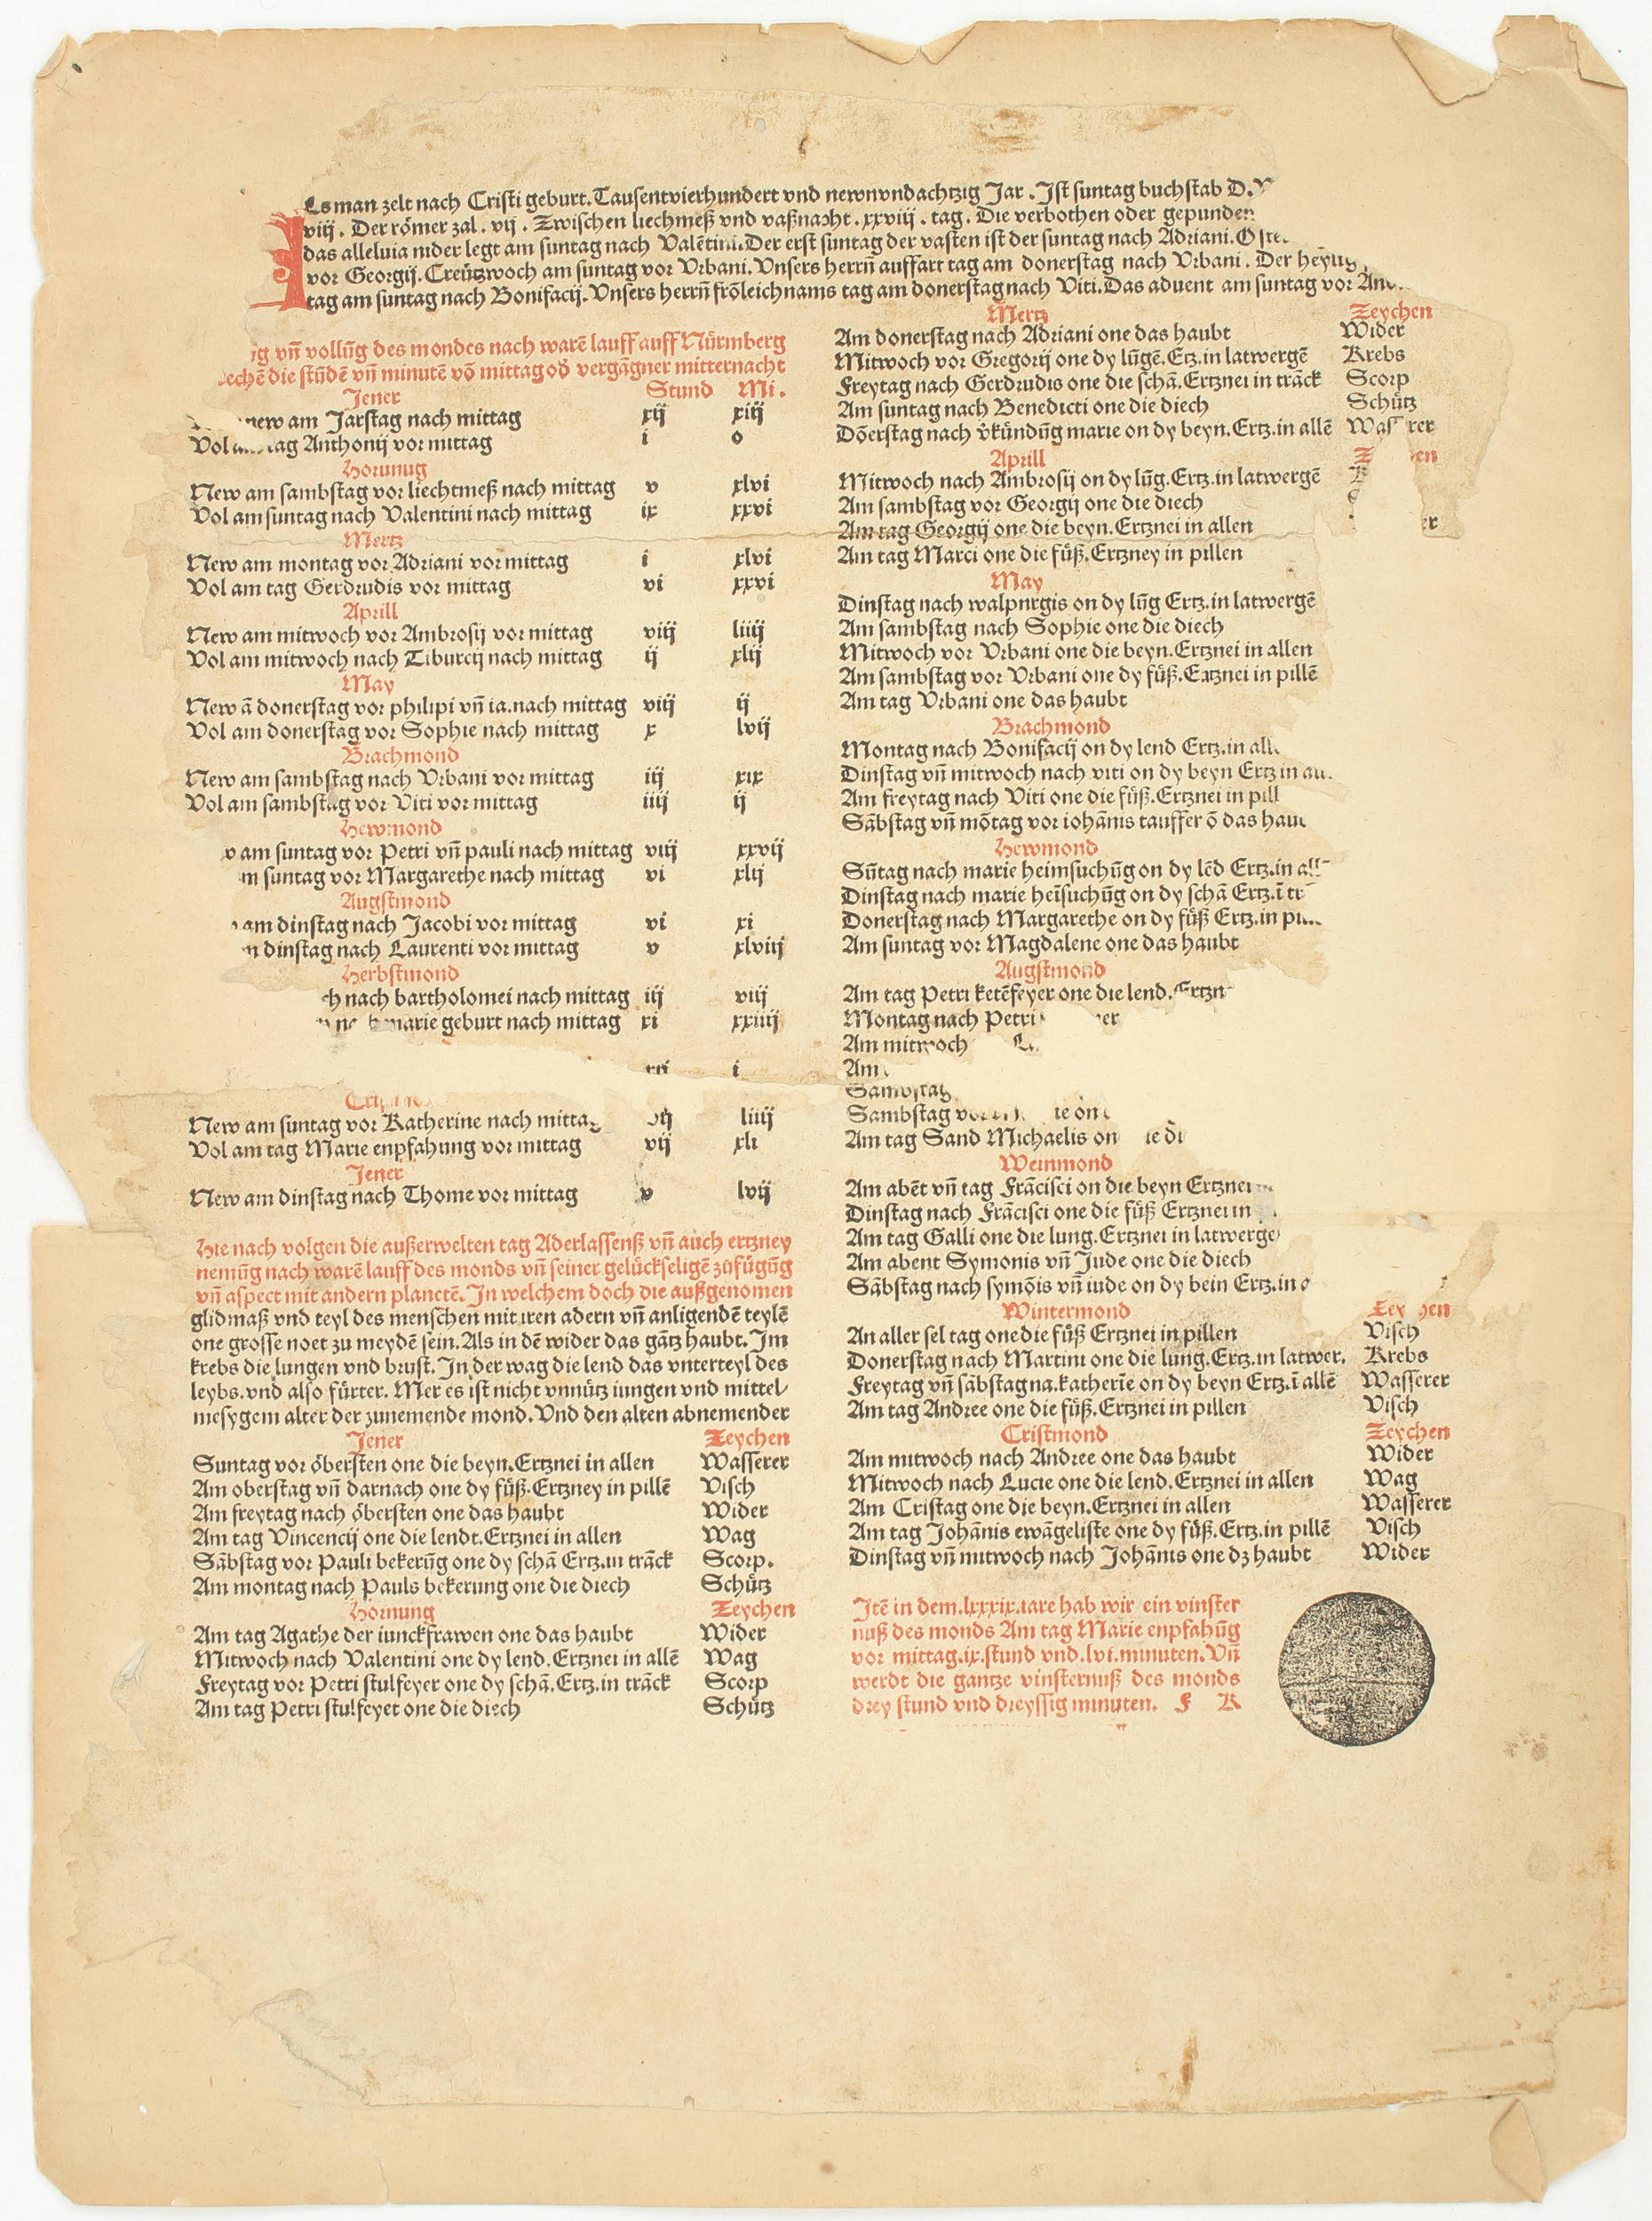 Ls man zelt nach Cristi geburt. Tausentvierhundert vnd newnvndachtzig Jar. Jst suntag buchstab D.
viij. Der römer zal. vij. Zwischen liechmeß vnd vaßnacht. xxviij. tag. Die verbothen oder gepunden
das alleluia nider legt am suntag nach Valētini. Der erst suntag der vasten ist der suntag nach Adriani.
vor Georgij. Creützwoch am suntag vor Vrbani. Vnsers herrn̄ auffart tag am donerstag nach Vrbani. Der heylig
tag am suntag nach Bonifacij. Vnsers herrn̄ frōleichnams tag am donerstag nach Viti. Das aduent am suntag vor
vn̄ vollūg des mondes nach warē lauff auff Nürmberg
die stūdē vn̄ minutē vō mittag od vergāgner mitternacht
Stund Mi.
Jener
new am Jarstag nach mittag xij xiij
Vol am tag Anthonij vor mittag i o
Hornung
New am sambstag vor liechtmeß nach mittag v xlvi
Vol am suntag nach Valentini nach mittag ix xxvi
Mertz
New am montag vor Adriani vor mittag i xlvi
Vol am tag Gerdrudis vor mittag vi xxvi
Aprill
New am mitwoch vor Ambrosij vor mittag viij liiij
Vol am mitwoch nach Tiburcij nach mittag ij xlij
May
New ā donerstag vor philipi vn̄ ia. nach mittag viij ij
Vol am donerstag vor Sophie nach mittag x lvij
Brachmond
New am sambstag nach Vrbani vor mittag iij xix
Vol am sambstag vor Viti vor mittag iiij ij
Hewmond
am suntag vor Petri vn̄ pauli nach mittag viij xxvij
suntag vor Margarethe nach mittag vi xlij
Augstmond
am dinstag nach Jacobi vor mittag vi xi
dinstag nach Laurenti vor mittag v xlviij
Herbstmond
nach bartholomei nach mittag iij viij
marie geburt nach mittag xi xxiiij
i
New am suntag vor Katherine nach mittag liiij
Vol am tag Marie enpfahung vor mittag vij xli
Jener
New am dinstag nach Thome vor mittag v lvij
Hie nach volgen die außerwelten tag Aderlassenß vn̄ auch ertzney
nemūg nach warē lauff des monds vn̄ seiner gelückseligē zůfügūg
vn̄ aspect mit andern planetē. Jn welchem doch die außgenomen
glidmaß vnd teyl des menschen mit iren adern vn̄ anligendē teylē
one grosse noet zu meydē sein. Als in dē wider das gātz haubt. Jm
krebs die lungen vnd brust. Jn der wag die lend das vnterteyl des
leybs. vnd also fürter. Mer es ist nicht vnnütz iungen vnd mittel/
mesygem alter der zunemende mond. Vnd den alten abnemender
Jener Zeychen
Suntag vor öbersten one die beyn. Ertznei in allen Wasserer
Am oberstag vn̄ darnach one dy füß. Ertzney in pillē Visch
Am freytag nach öbersten one das haubt Wider
Am tag Vincencij one die lendt. Ertznei in allen Wag
Sābstag vor Pauli bekerūg one dy schā Ertz. in trāck Scorp.
Am montag nach Pauls bekerung one die diech Schütz
Hornung Zeychen
Am tag Agathe der iunckfrawen one das haubt Wider
Mitwoch nach Valentini one dy lend. Ertznei in allē Wag
Freytag vor Petri stulfeyer one dy schā. Ertz. in trāck Scorp
Am tag Petri stulfeyer one die diech Schütz
Mertz Zeychen
Am donerstag nach Adriani one das haubt Wider
Mitwoch vor Gregorij one dy lūgē. Ertz. in latwergē Krebs
Freytag nach Gerdrudis one die schā. Ertznei in trāck Scorp
Am suntag nach Benedicti one die diech Schütz
Dōerstag nach v̄kündūg marie on dy beyn. Ertz. in allē Wasserer
Aprill
Mitwoch nach Ambrosij on dy lūg. Ertz. in latwergē
Am sambstag vor Georgij one die diech
Am tag Georgij one die beyn. Ertznei in allen
Am tag Marci one die füß. Ertzney in pillen
May
Dinstag nach walpurgis on dy lūg Ertz. in latwergē
Am sambstag nach Sophie one die diech
Mitwoch vor Vrbani one die beyn. Ertznei in allen
Am sambstag vor Vrbani one dy füß. Ertznei in pillē
Am tag Vrbani one das haubt
Brachmond
Montag nach Bonifacij on dy lend Ertz. in
Dinstag vn̄ mitwoch nach viti on dy beyn Ertz in
Am freytag nach Viti one die füß. Ertznei in pill
Sābstag vn̄ mōtag vor iohānis tauffer ō das
Hewmond
Sūtag nach marie heimsuchūg on dy lēd Ertz. in
Dinstag nach marie heīsuchūg on dy schā Ertz. ī
Donerstag nach Margarethe on dy füß Ertz. in
Am suntag vor Magdalene one das haubt
Augstmond
Am tag Petri ketēfeyer one die lend.
Montag nach Petri
Am mitwoch
Am
Sambstag
Sambstag
Am tag Sand Michaelis on
Weinmond
Am abēt vn̄ tag Frācisci on die beyn Ertznei
Dinstag nach Frācisci one die füß Ertznei in
Am tag Galli one die lung. Ertznei in latwerge
Am abent Symonis vn̄ Jude one die diech
Sābstag nach symōis vn̄ iude on dy bein Ertz. in
Wintermond Zeychen
An aller sel tag one die füß Ertznei in pillen Visch
Donerstag nach Martini one die lung. Ertz. in latwer. Krebs
Freytag vn̄ sābstag na. katherīe on dy beyn Ertz. ī allē Wasserer
Am tag Andree one die füß. Ertznei in pillen Visch
Cristmond Zeychen
Am mitwoch nach Andree one das haubt Wider
Mitwoch nach Lucie one die lend. Ertznei in allen Wag
Am Cristag one die beyn. Ertznei in allen Wasserer
Am tag Johānis ewāgeliste one dy füß. Ertz. in pillē Visch
Dinstag vn̄ mitwoch nach Johānis one dz haubt Wider
Jtē in dem. lxxxix. iare hab wir ein vinster
nuß des monds Am tag Marie enpfahūg
vor mittag. ix. stund vnd. lvi. minuten. Vn̄
werdt die gantze vinsternuß des monds
drey stund vnd dreyssig minuten. F K